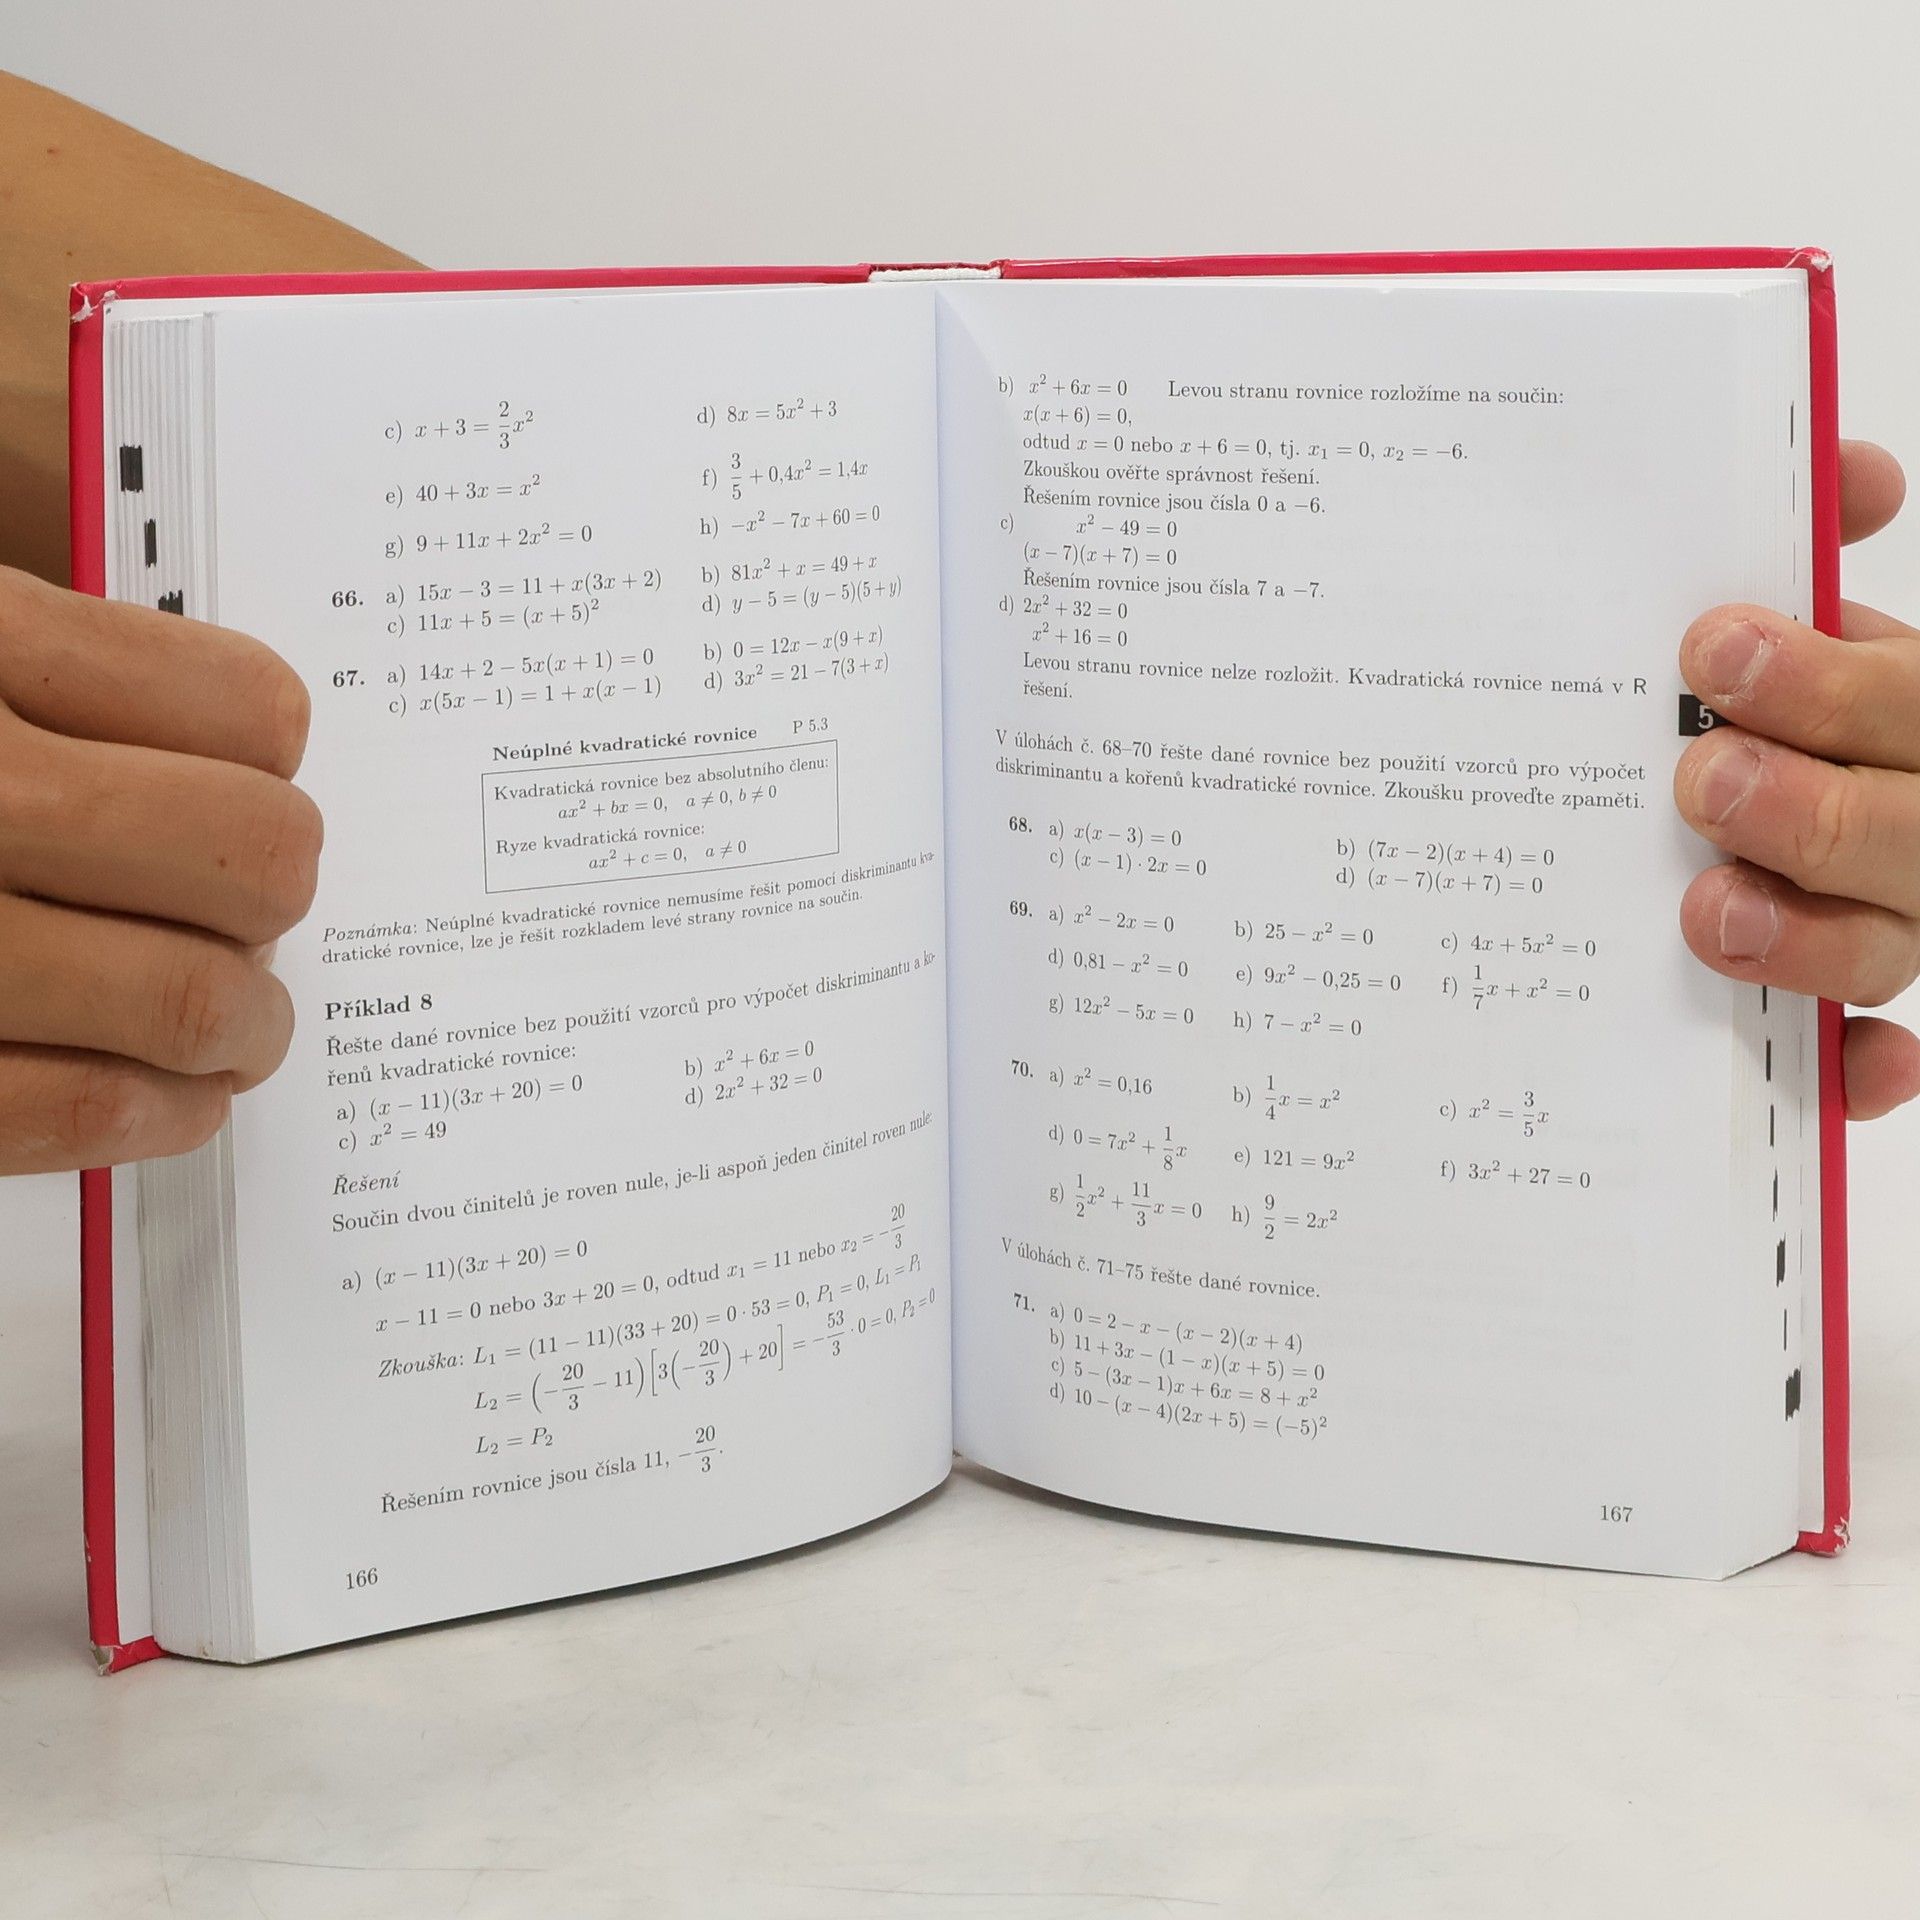 c) x + 3 = 2/3 x²    d) 8x = 5x² + 3
e) 40 + 3x = x²    f) 3/5 + 0,4x² = 1,4x
g) 9 + 11x + 2x² = 0    h) −x² − 7x + 60 = 0
66. a) 15x − 3 = 11 + x(3x + 2)    b) 81x² + x = 49 + x
c) 11x + 5 = (x + 5)²    d) y − 5 = (y − 5)(5 + y)
67. a) 14x + 2 − 5x(x + 1) = 0    b) 0 = 12x − x(9 + x)
c) x(5x − 1) = 1 + x(x − 1)    d) 3x² = 21 − 7(3 + x)
Neúplné kvadratické rovnice    P 5.3
Kvadratická rovnice bez absolutního členu:
ax² + bx = 0, a ≠ 0, b ≠ 0
Ryze kvadratická rovnice:
ax² + c = 0, a ≠ 0
Poznámka: Neúplné kvadratické rovnice nemusíme řešit pomocí diskriminantu kva-
dratické rovnice, lze je řešit rozkladem levé strany rovnice na součin.
Příklad 8
Řešte dané rovnice bez použití vzorců pro výpočet diskriminantu a ko-
řenů kvadratické rovnice:
a) (x − 11)(3x + 20) = 0    b) x² + 6x = 0
c) x² = 49    d) 2x² + 32 = 0
Řešení
Součin dvou činitelů je roven nule, je-li aspoň jeden činitel roven nule:
a) (x − 11)(3x + 20) = 0
x − 11 = 0 nebo 3x + 20 = 0, odtud x₁ = 11 nebo x₂ = −20/3
Zkouška: L₁ = (11 − 11)(33 + 20) = 0 · 53 = 0, P₁ = 0, L₁ = P₁
L₂ = (−20/3 − 11)[3(−20/3) + 20] = −53/3 · 0 = 0, P₂ = 0
L₂ = P₂
Řešením rovnice jsou čísla 11, −20/3.
166
b) x² + 6x = 0    Levou stranu rovnice rozložíme na součin:
x(x + 6) = 0,
odtud x = 0 nebo x + 6 = 0, tj. x₁ = 0, x₂ = −6.
Zkouškou ověřte správnost řešení.
Řešením rovnice jsou čísla 0 a −6.
c) x² − 49 = 0
(x − 7)(x + 7) = 0
Řešením rovnice jsou čísla 7 a −7.
d) 2x² + 32 = 0
x² + 16 = 0
Levou stranu rovnice nelze rozložit. Kvadratická rovnice nemá v R
řešení.
5
V úlohách č. 68–70 řešte dané rovnice bez použití vzorců pro výpočet
diskriminantu a kořenů kvadratické rovnice. Zkoušku proveďte zpaměti.
68. a) x(x − 3) = 0    b) (7x − 2)(x + 4) = 0
c) (x − 1) · 2x = 0    d) (x − 7)(x + 7) = 0
69. a) x² − 2x = 0    b) 25 − x² = 0    c) 4x + 5x² = 0
d) 0,81 − x² = 0    e) 9x² − 0,25 = 0    f) 1/7 x + x² = 0
g) 12x² − 5x = 0    h) 7 − x² = 0
70. a) x² = 0,16    b) 1/4 x = x²    c) x² = 3/5 x
d) 0 = 7x² + 1/8 x    e) 121 = 9x²    f) 3x² + 27 = 0
g) 1/2 x² + 11/3 x = 0    h) 9/2 = 2x²
V úlohách č. 71–75 řešte dané rovnice.
71. a) 0 = 2 − x − (x − 2)(x + 4)
b) 11 + 3x − (1 − x)(x + 5) = 0
c) 5 − (3x − 1)x + 6x = 8 + x²
d) 10 − (x − 4)(2x + 5) = (−5)²
167